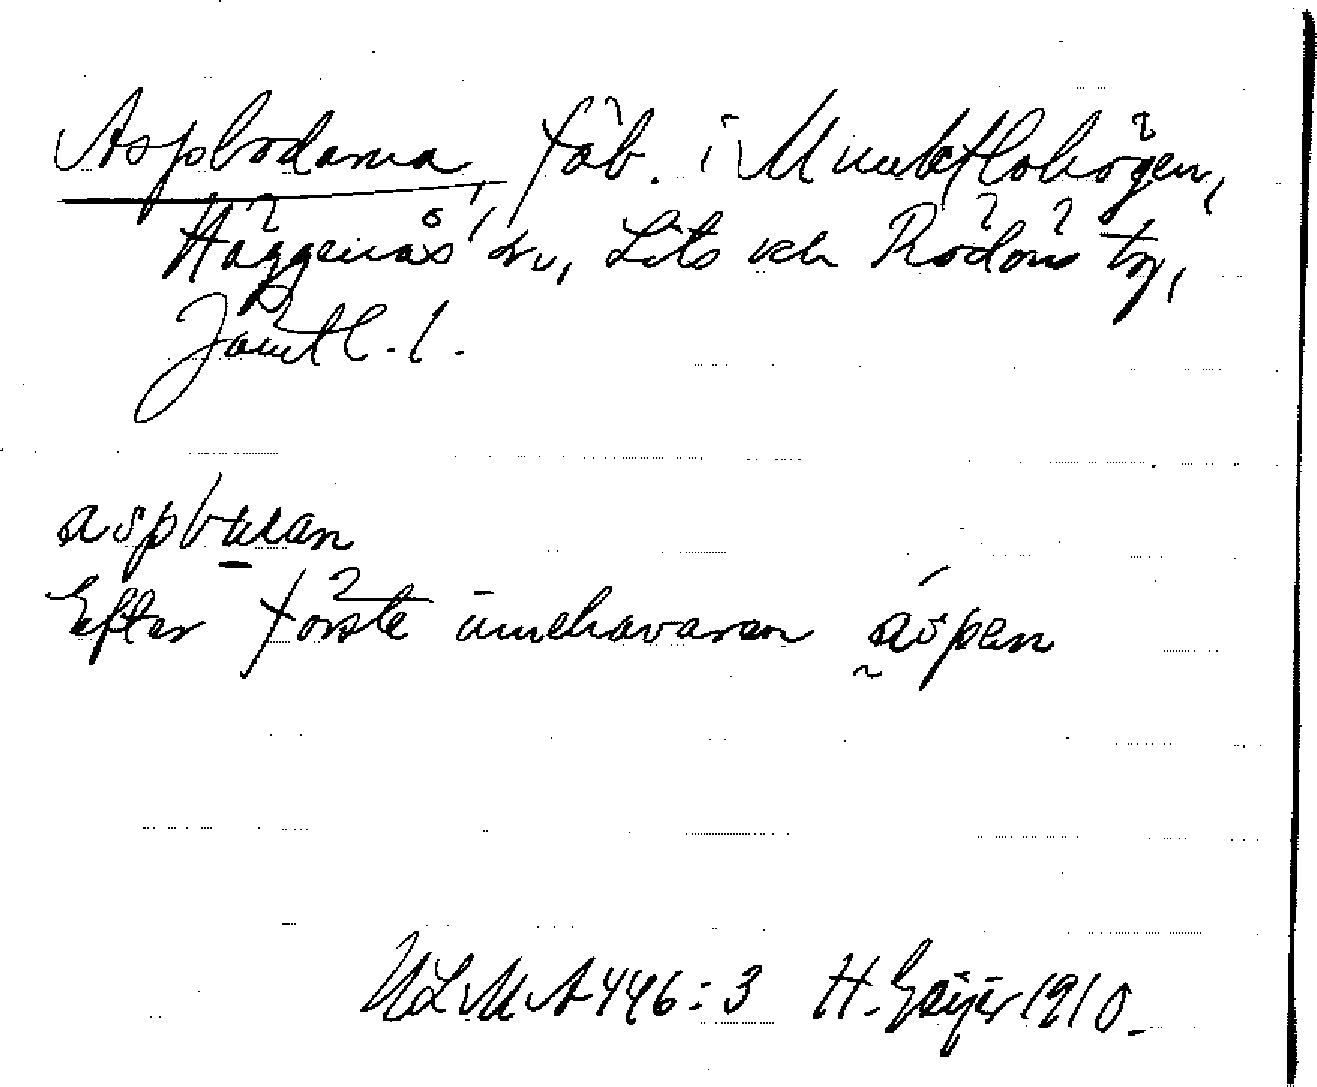 Aspbodarna, fäb. i Munkflohögen,
Häggenås sn, Lits och Rödöns tg,
Jämtl. l.
aspbuan
Efter förste innehavaren aspen
ULMA 446:3 H. Geijer 1910.